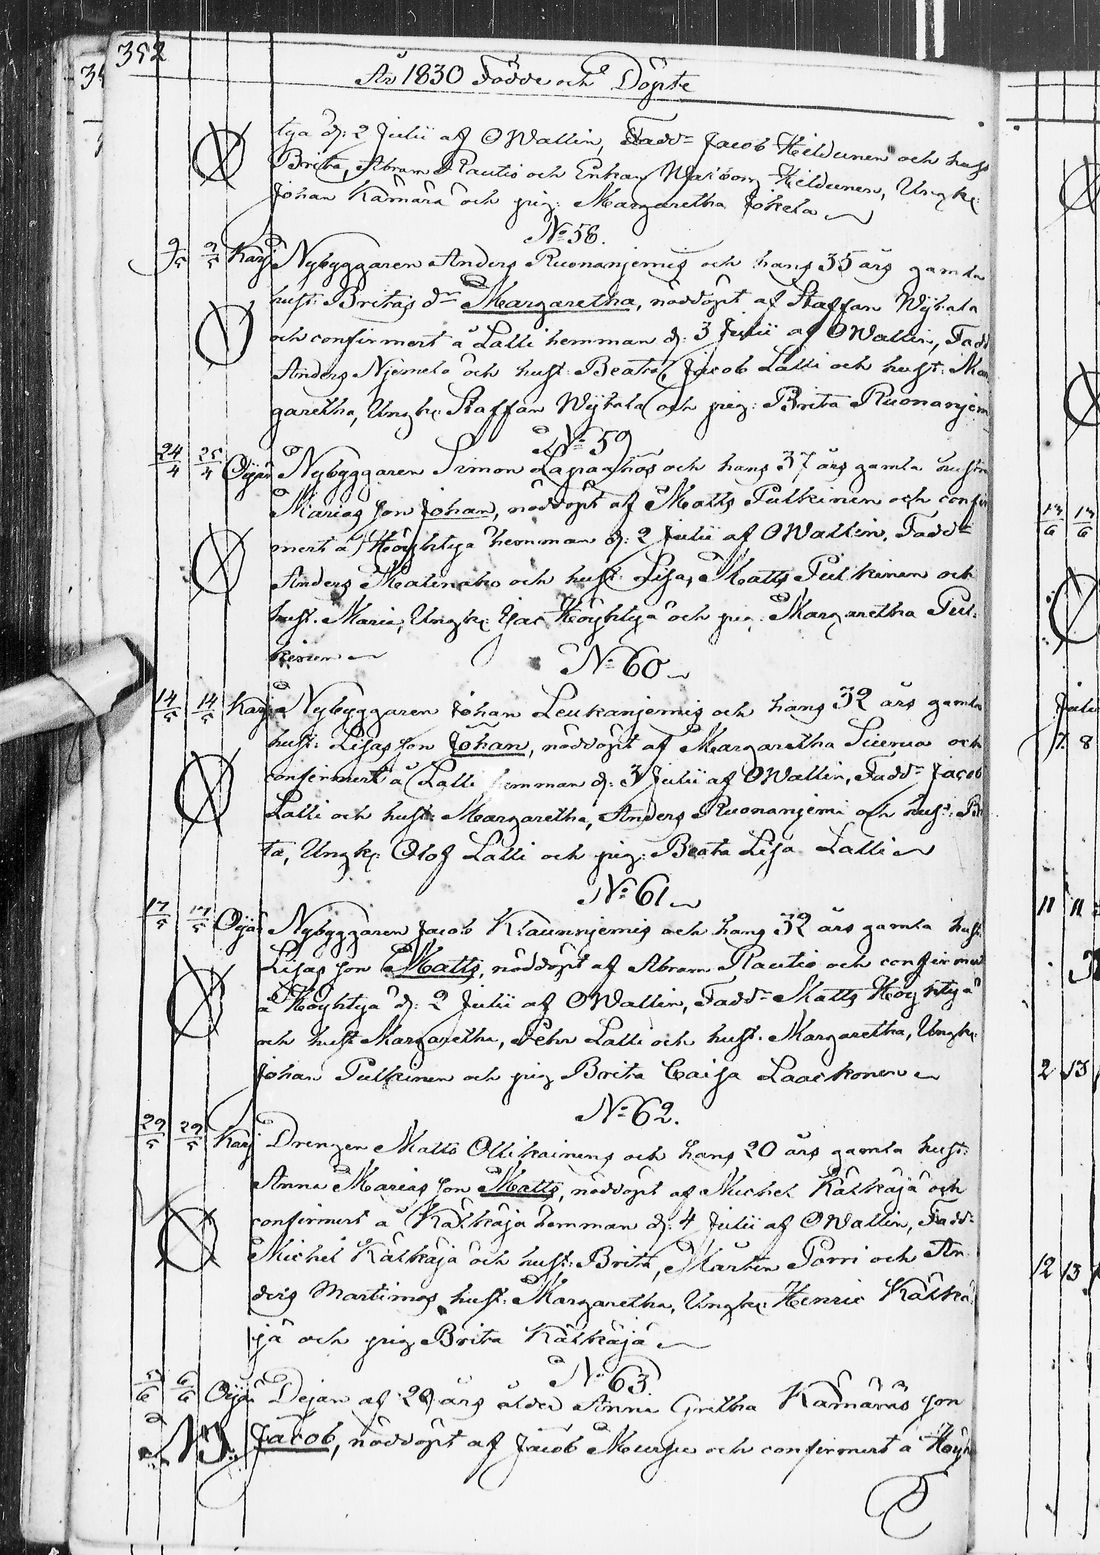 352
År 1830 Födde och Döpte
tya d: 2 Julii af O Wallin, Fadd: Jacob Hildunen och hust
Brita, Abram Rautio och Enkan Walborg Hildunen, Ungk:
Johan Kämärä och pig: Margaretha Jokela
No 58.
9/5 9/5 Karj Nybyggaren Anders Ruonanjemis och hans 35 års gamla
hust: Britas dr Margaretha, nöddöpt af Staffan Wijkala
och confirmert å Lalli hemman d: 3 Julii af O Wallin, Fadd
Anders Njemelo och hust: Beata, Jacob Lalli och hust: Mar
garetha, Ungk: Staffan Wijkala och pig: Brita Ruonanjem
No 59
24/4 25/4 Oijä Nybyggaren Simon och hans 37 års gamla hustr
Marias son Johan, nöddöpt af Matts Pulkinen och confir
mert å Höyhtyä hemman d: 2 Julii af O Wallin, Fadd:
Anders och hust: Lisa, Matts Pulkinen och
hust. Maria, Ungk: Isac Höyhtyä och pig: Margaretha Pul-
kinen
No 60
14/5 14/5 Karj Nybyggaren Johan Leukanjemis och hans 32 års gamla
hust: Lisas son Johan, nöddöpt af Margaretha och
confirmert å Lalli hemman d: 3 Julii af O Wallin, Fadd: Jacob
Lalli och hust: Margaretha, Anders Ruonanjemi och hust: Bri
ta, Ungk: Olof Lalli och pig: Beata Lisa Lalli
No 61
17/5 17/5 Oijä Nybyggaren Jacob Kraunnjemis och hans 32 års gamla hust
Lisas son Matts, nöddöpt af Abram Rautio och confirmert
å Höyhtyä d: 2 Julii af O Wallin, Fadd: Matts Höyhtyä
och hust Margaretha, Pehr Lalli och hust. Margaretha, Ungk:
Johan Pulkinen och pig Brita Caisa Laackonen
No 62.
29/5 29/5 Karj Drengen Matts Ollikainens och hans 20 års gamla hust:
Anna Marias son Matts, nöddöpt af Michel Kälkäjä och
confirmert å Kälkäjä hemman d: 4 Julii af O Wallin, Fadd:
Michel Kälkäjä och hust: Brita, Mårten Porri och An-
ders Martimos hust: Margaretha, Ungk: Henric Kälkä-
jä och pig Brita Kälkäjä
No 63.
5/6 6/6 Oijä Dejan af 29 års ålder Anna Gretha Kämäräs son
Jacob, nöddöpt af Jacob Mursu och confirmert å Höyh
13/6 13/6
Juli
7 8
11 11
2 13
12 13